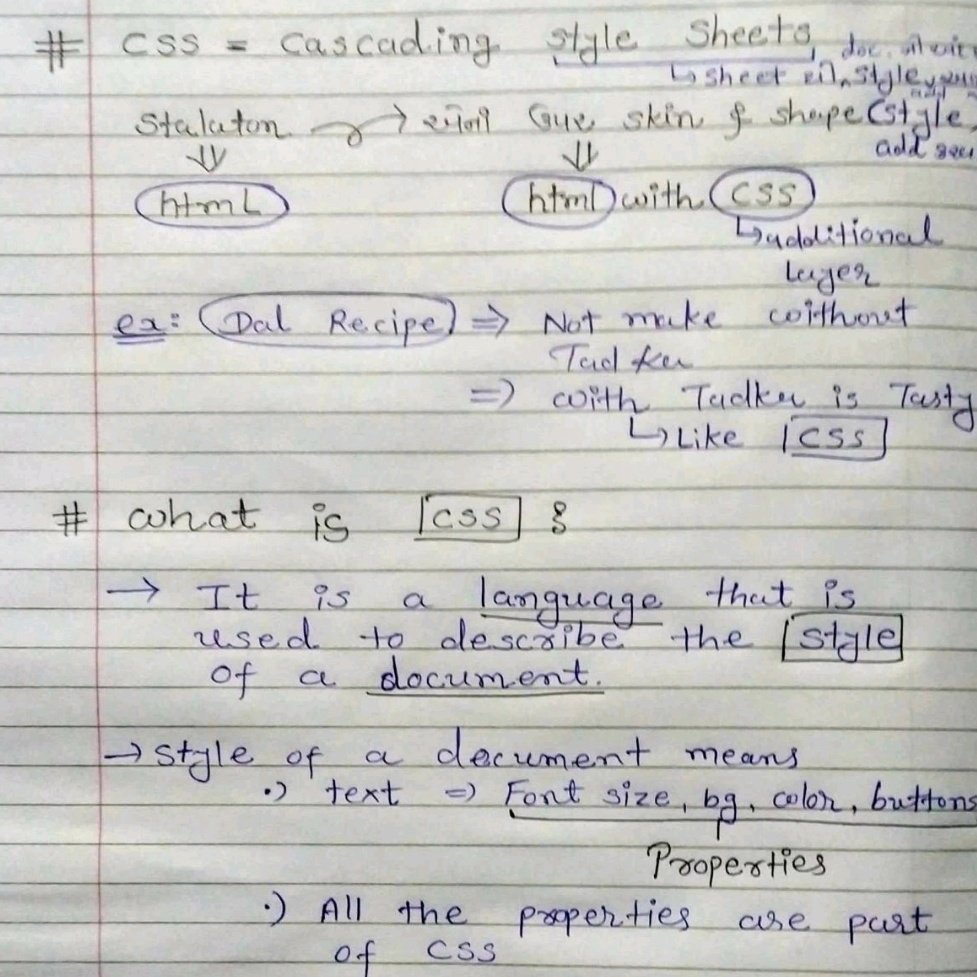 # CSS = Cascading style Sheets,
↳ sheet style
Stalaton → skin & shape (style
add
⇓ ⇓
html html with CSS
↳ additional
layer
ex: Dal Recipe ⇒ Not make without
Tadka
⇒ with Tadka is Tasty
↳ Like CSS
# what is CSS ?
→ It is a language that is
used to describe the style
of a document.
→ style of a document means
•) text ⇒ Font size, bg, color, buttons
Properties
•) All the properties are part
of CSS